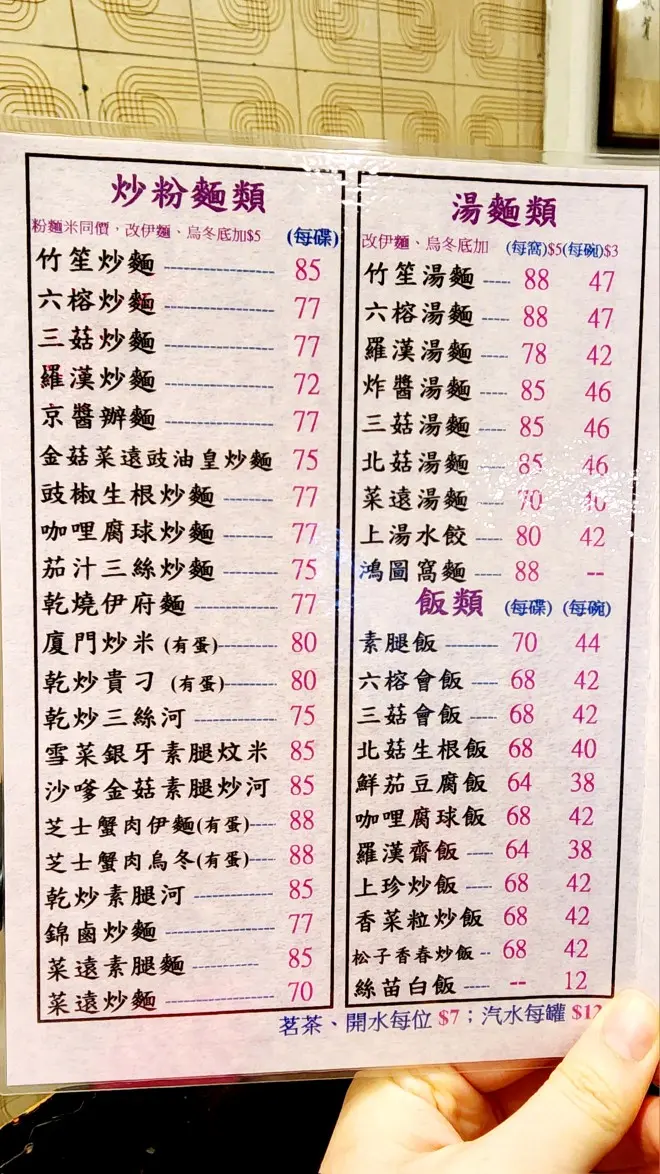 炒粉麵類
粉麵米同價,改伊麵、烏冬底加$5 (每碟)
竹笙炒麵 85
六榕炒麵 77
三菇炒麵 77
羅漢炒麵 72
京醬辦麵 77
金菇菜遠豉油皇炒麵 75
豉椒生根炒麵 77
咖哩腐球炒麵 77
茄汁三絲炒麵 75
乾燒伊府麵 77
廈門炒米 (有蛋) 80
乾炒貴刁 (有蛋) 80
乾炒三絲河 75
雪菜銀牙素腿炆米 85
沙嗲金菇素腿炒河 85
芝士蟹肉伊麵(有蛋) 88
芝士蟹肉烏冬(有蛋) 88
乾炒素腿河 85
錦鹵炒麵 77
菜遠素腿麵 85
菜遠炒麵 70
湯麵類
改伊麵、烏冬底加 (每窩)$5(每碗)$3
竹笙湯麵 88 47
六榕湯麵 88 47
羅漢湯麵 78 42
炸醬湯麵 85 46
三菇湯麵 85 46
北菇湯麵 85 46
菜遠湯麵 70
上湯水餃 80 42
鴻圖窩麵 88 --
飯類 (每碟) (每碗)
素腿飯 70 44
六榕會飯 68 42
三菇會飯 68 42
北菇生根飯 68 40
鮮茄豆腐飯 64 38
咖哩腐球飯 68 42
羅漢齋飯 64 38
上珍炒飯 68 42
香菜粒炒飯 68 42
松子香春炒飯 68 42
絲苗白飯 -- 12
茗茶、開水每位 $7;汽水每罐